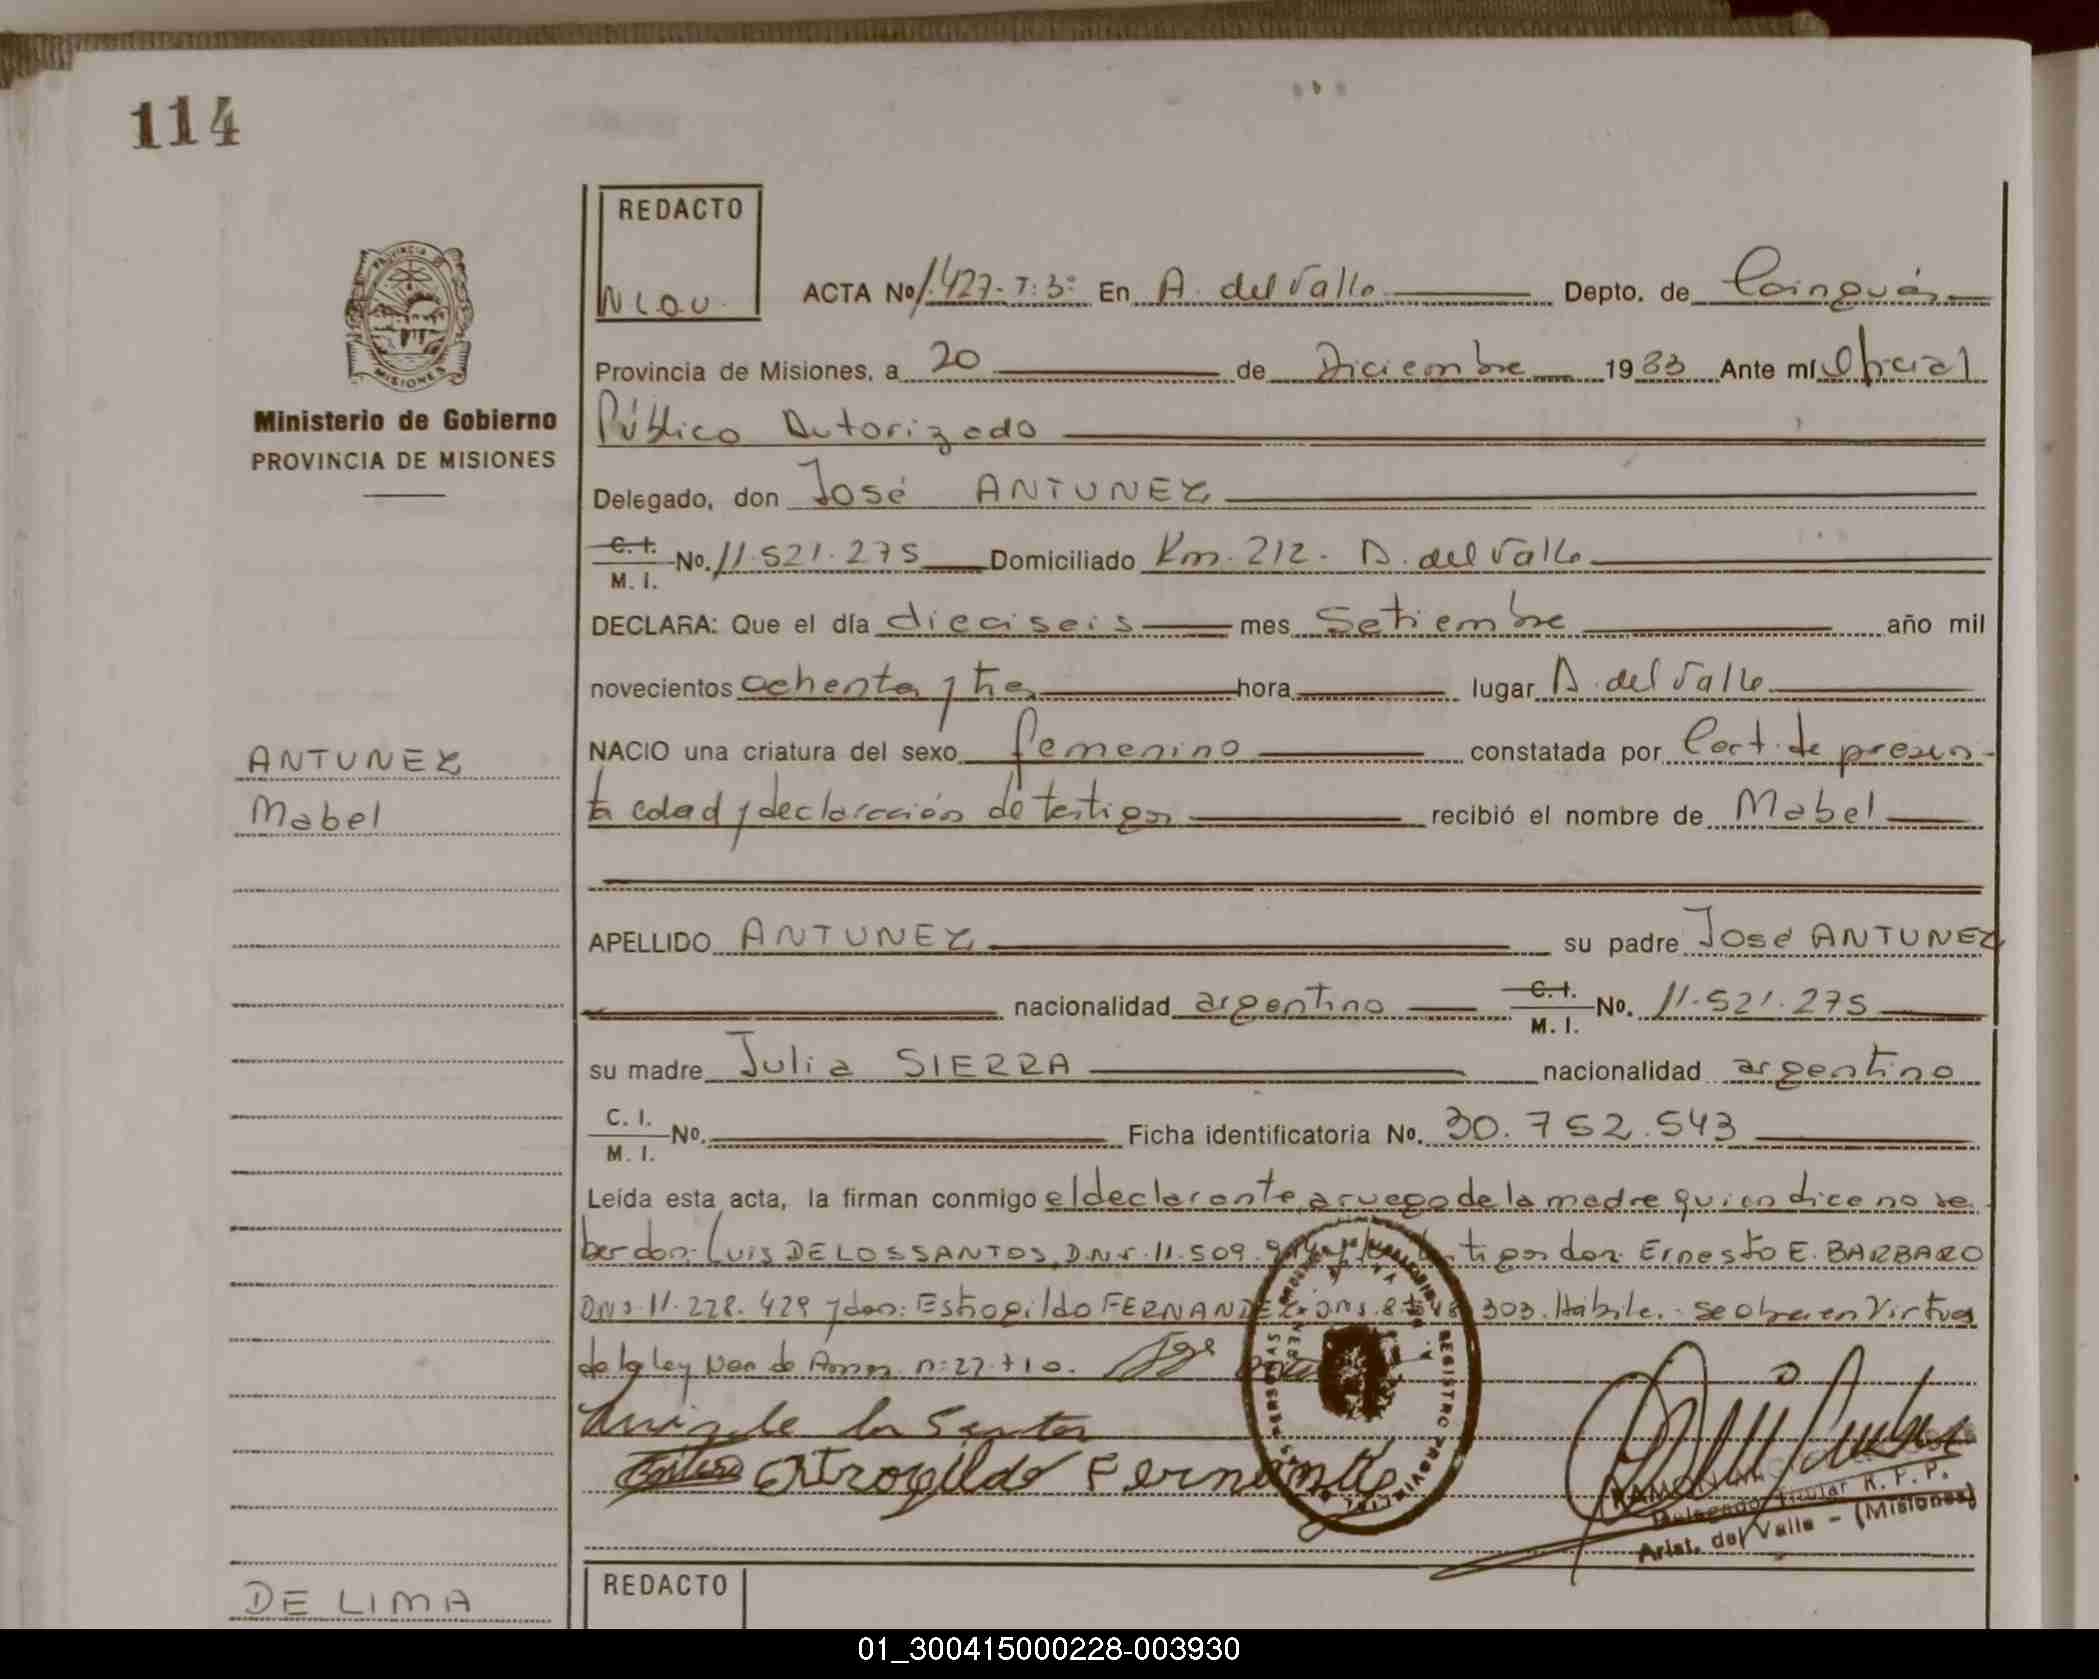 114
REDACTO
NLQU.
ACTA Nº 1.427- T: 3º En A. del Valle Depto. de Cainguás
PROVINCIA DE MISIONES
Provincia de Misiones, a 20 de Diciembre 1983 Ante mí Oficial
Público Autorizado
Ministerio de Gobierno
PROVINCIA DE MISIONES
Delegado, don José ANTUNEZ
C. I.
M. I. No. 11.521.275 Domiciliado Km. 212 - A. del Valle
DECLARA: Que el día dieciseis mes Setiembre año mil
novecientos ochenta y tres hora lugar A. del Valle
NACIO una criatura del sexo femenino constatada por Cert. de presun-
ta edad y declaración de testigos recibió el nombre de Mabel
ANTUNEZ
Mabel
APELLIDO ANTUNEZ su padre José ANTUNEZ
nacionalidad argentino C. I.
M. I. No. 11.521.275
su madre Julia SIERRA nacionalidad argentino
C. I.
M. I. No. Ficha identificatoria No. 30.752.543
Leída esta acta, la firman conmigo el declarante, a ruego de la madre quien dice no sa-
ber don: Luis DE LOS SANTOS, D.N.I. 11.509. testigos don: Ernesto E. BARBARO
DNI. 11.228.429 y don: Estrogildo FERNANDEZ DNI. 303. Hábile.- Se obra en Virtud
de la ley n: 22.710.
Luis de los Santos
Estrogildo Fernandez
REGISTRO PROVINCIAL DE LAS PERSONAS
RAMON
Delegado Titular R. P. P.
Arist. del Valle - (Misiones)
DE LIMA
REDACTO
01_300415000228-003930